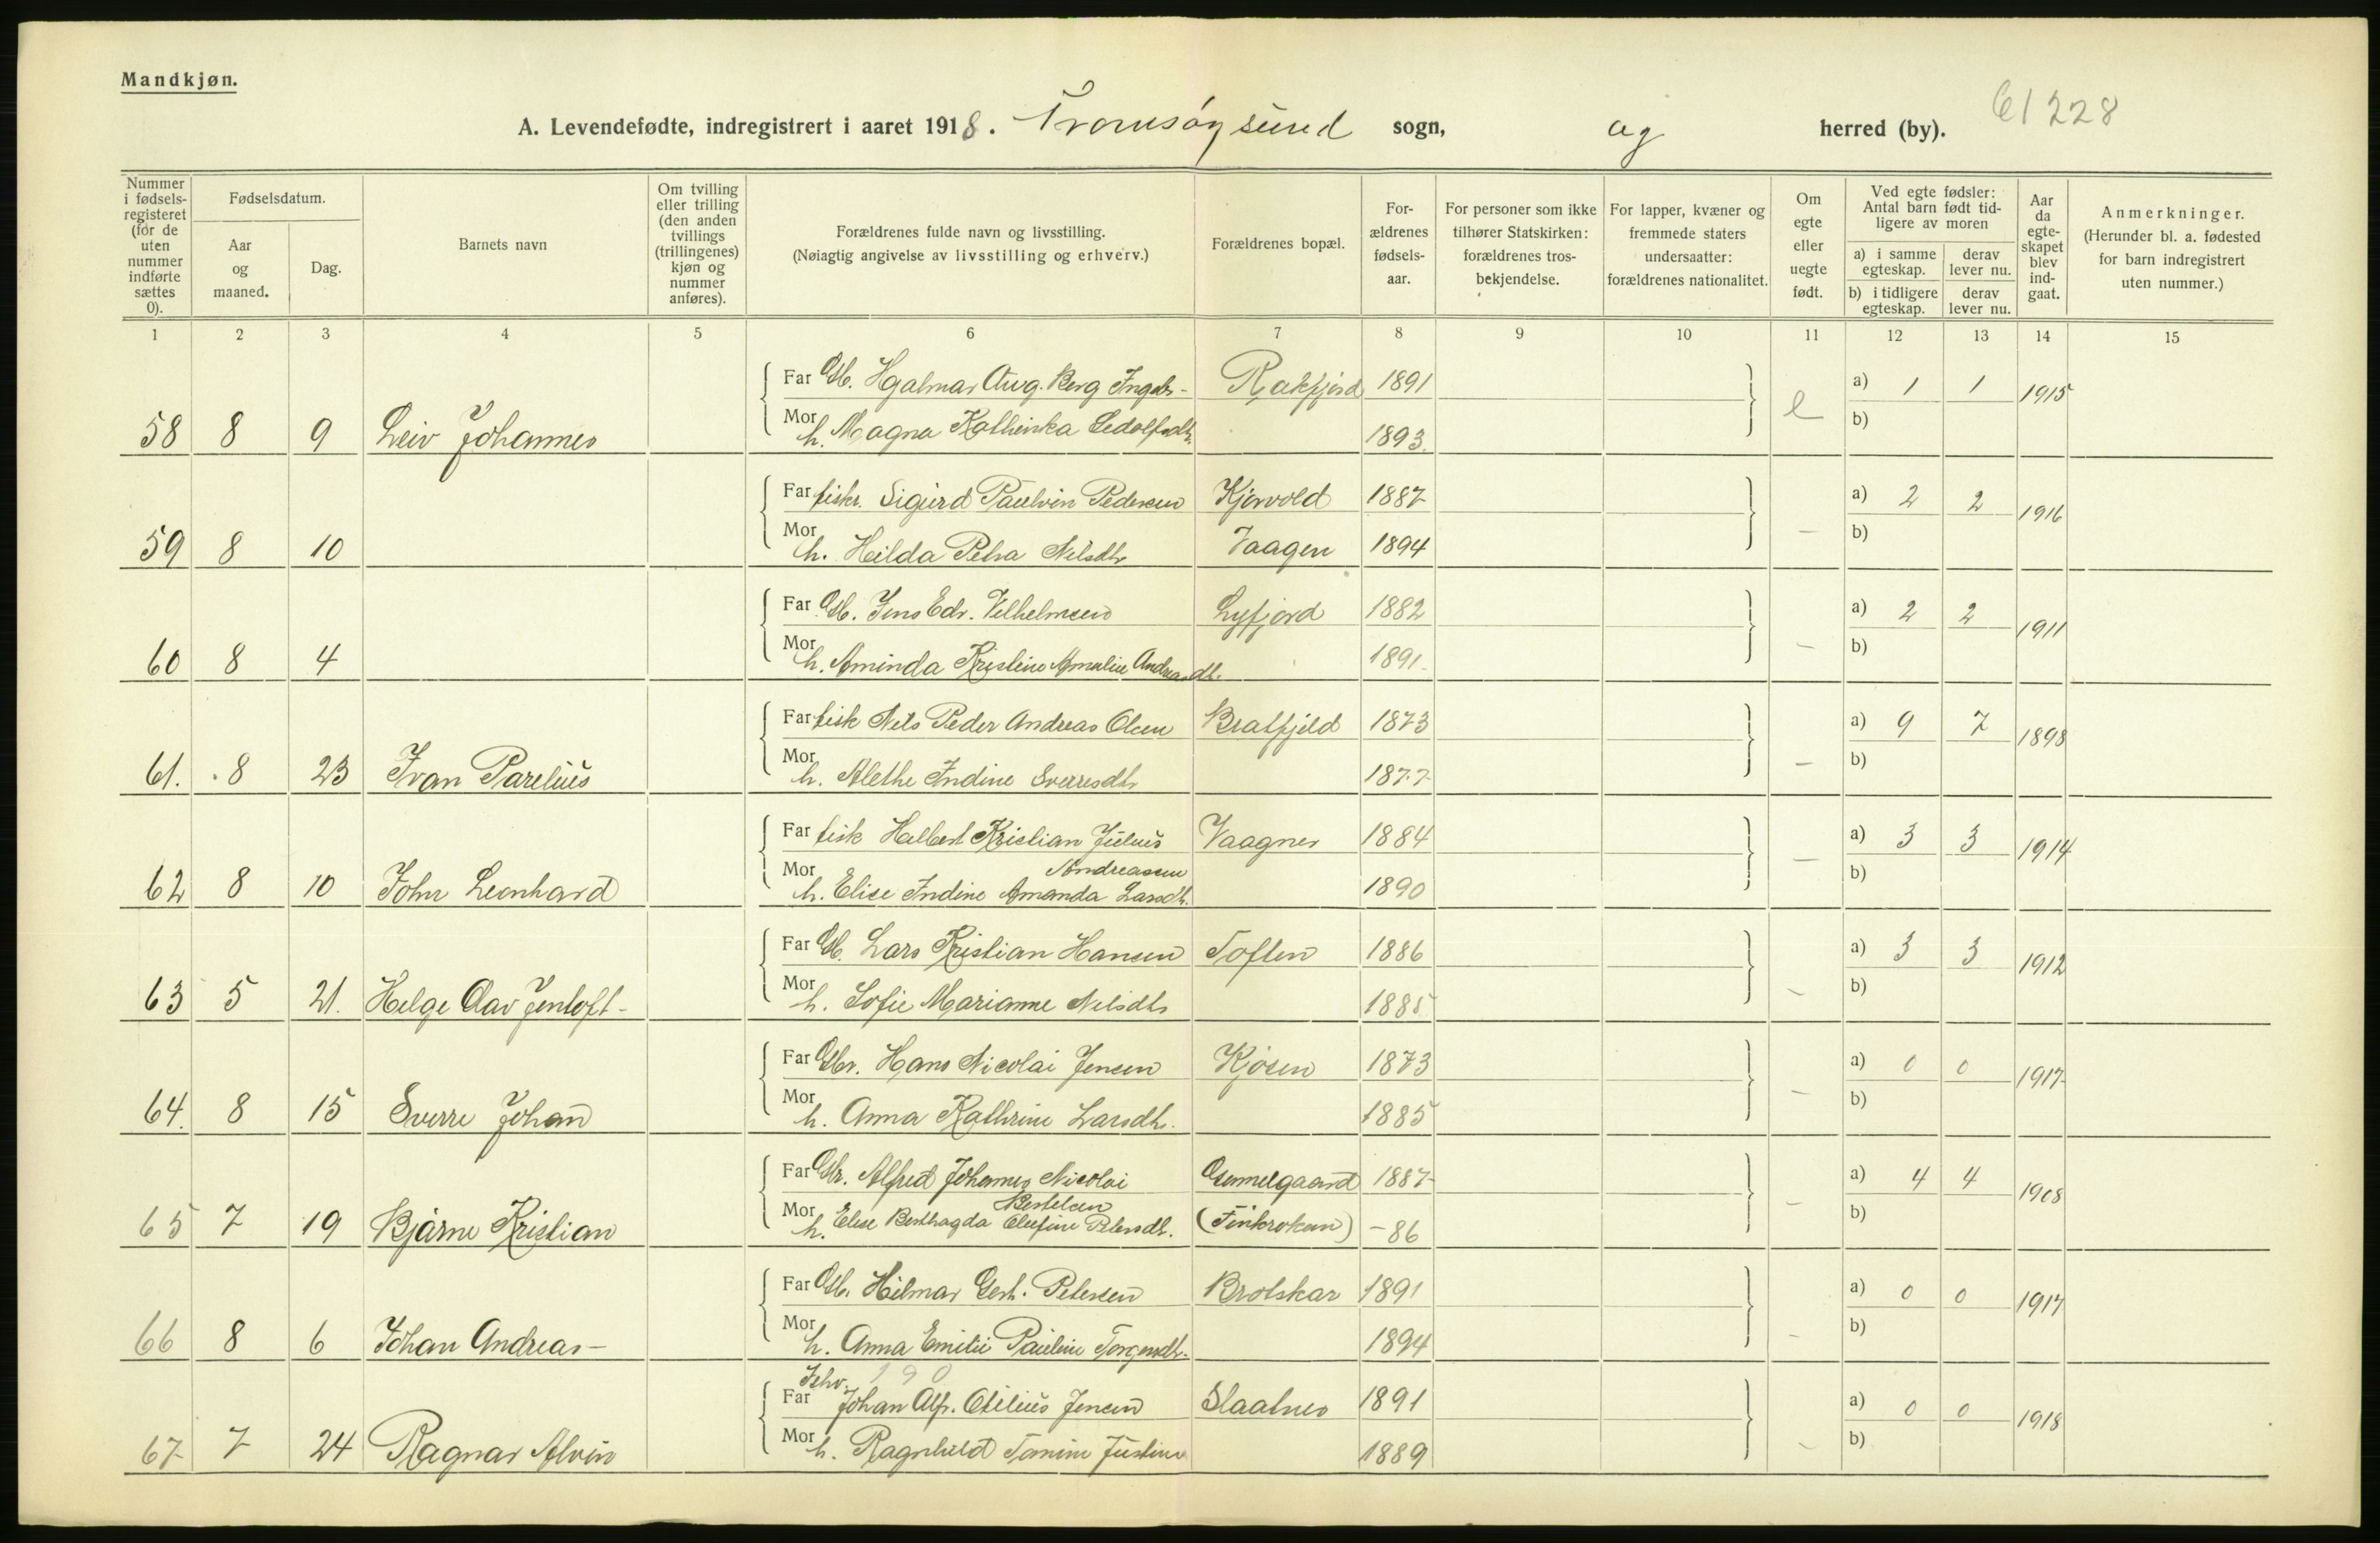 Mandkjøn.
A. Levendefødte, indregistrert i aaret 1918. Tromsøysund sogn, og herred (by). 61 228
Nummer i fødselsregisteret (for de uten nummer indførte sættes 0).
Fødselsdatum.
Aar og maaned.
Dag.
Barnets navn
Om tvilling eller trilling (den anden tvillings (trillingenes) kjøn og nummer anføres).
Forældrenes fulde navn og livsstilling.
(Nøiagtig angivelse av livsstilling og erhverv.)
Forældrenes bopæl.
Forældrenes fødselsaar.
For personer som ikke tilhører Statskirken: forældrenes trosbekjendelse.
For lapper, kvæner og fremmede staters undersaatter: forældrenes nationalitet.
Om egte eller uegte født.
Ved egte fødsler: Antal barn født tidligere av moren
a) i samme egteskap. derav lever nu.
b) i tidligere egteskap. derav lever nu.
Aar da egteskapet blev indgaat.
Anmerkninger.
(Herunder bl. a. fødested for barn indregistrert uten nummer.)
1 2 3 4 5 6 7 8 9 10 11 12 13 14 15
Far Gb. Hjalmar Aug. Berg Ingebr- Rakfjord 1891 a) 1 1 1915
58 8 9 Leiv Johannes Mor h. Magna Kathinka 1893 e b)
Far fiskr. Sigurd Paulvin Pedersen Kjørvold 1887 a) 2 2 1916
59 8 10 Mor h. Hilda Petra Nilsdtr Vaagen 1894 – b)
Far Gb. Jens Edv. Vilhelmsen Lyfjord 1882 a) 2 2 1911
60 8 4 Mor h. Aminda Kristine Amalie Andreasdt. 1891 – b)
Far fisk Nels Peder Andreas Olsen Bratfjeld 1873 a) 9 7 1898
61. 8 23 Ivan Parelius Mor h. Alethe Indine Sverresdtr 1877 – b)
Far fisk Halbert Kristian Julius Vaagnes 1884 a) 3 3 1914
Andreasen
62 8 10 John Leonhard Mor h. Elise Indine Amanda Larsdt. 1890 – b)
Far Gb. Lars Kristian Hansen Toften 1886 a) 3 3 1912
63 5 21. Helge Olav Jentoft- Mor h. Sofie Marianne Nilsdtr 1885 – b)
Far Gbr. Hans Nicolai Jensen Kjosen 1873 a) 0 0 1917
64. 8 15 Sverre Johan Mor h. Anna Kathrine Larsdtr. 1885 – b)
Far Gbr. Alfred Johannes Nicolai Gammelgaard 1887 a) 4 4 1908
Bertelsen
65 7 19 Bjarne Kristian Mor h. Elise Berthagda Olufine Petersdt. (Finkroken) -86 – b)
Far Gb. Hilmar Gerh. Petersen Brotskar 1891 a) 0 0 1917
66 8 6 Johan Andreas- Mor h. Anna Emilie Pauline 1894 – b)
Ishv. 190
Far Johan Alf. Otilius Jensen Slaatnes 1891 a) 0 0 1918
67 7 24 Ragnar Alvin Mor h. Ragnhild Tomine Justine 1889 – b)